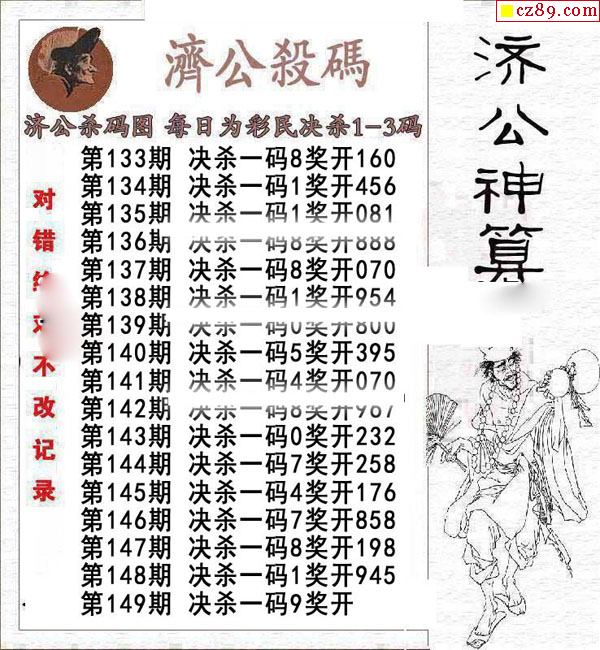 cz89.com
濟公殺碼
济公杀码图 每日为彩民决杀1-3码
第133期 决杀一码8奖开160
第134期 决杀一码1奖开456
第135期 决杀一码1奖开081
第136期 决杀一码8奖开888
第137期 决杀一码8奖开070
第138期 决杀一码1奖开954
第139期 决杀一码0奖开800
第140期 决杀一码5奖开395
第141期 决杀一码4奖开070
第142期 决杀一码8奖开967
第143期 决杀一码0奖开232
第144期 决杀一码7奖开258
第145期 决杀一码4奖开176
第146期 决杀一码7奖开858
第147期 决杀一码8奖开198
第148期 决杀一码1奖开945
第149期 决杀一码9奖开
对错 不改记录
济公神算